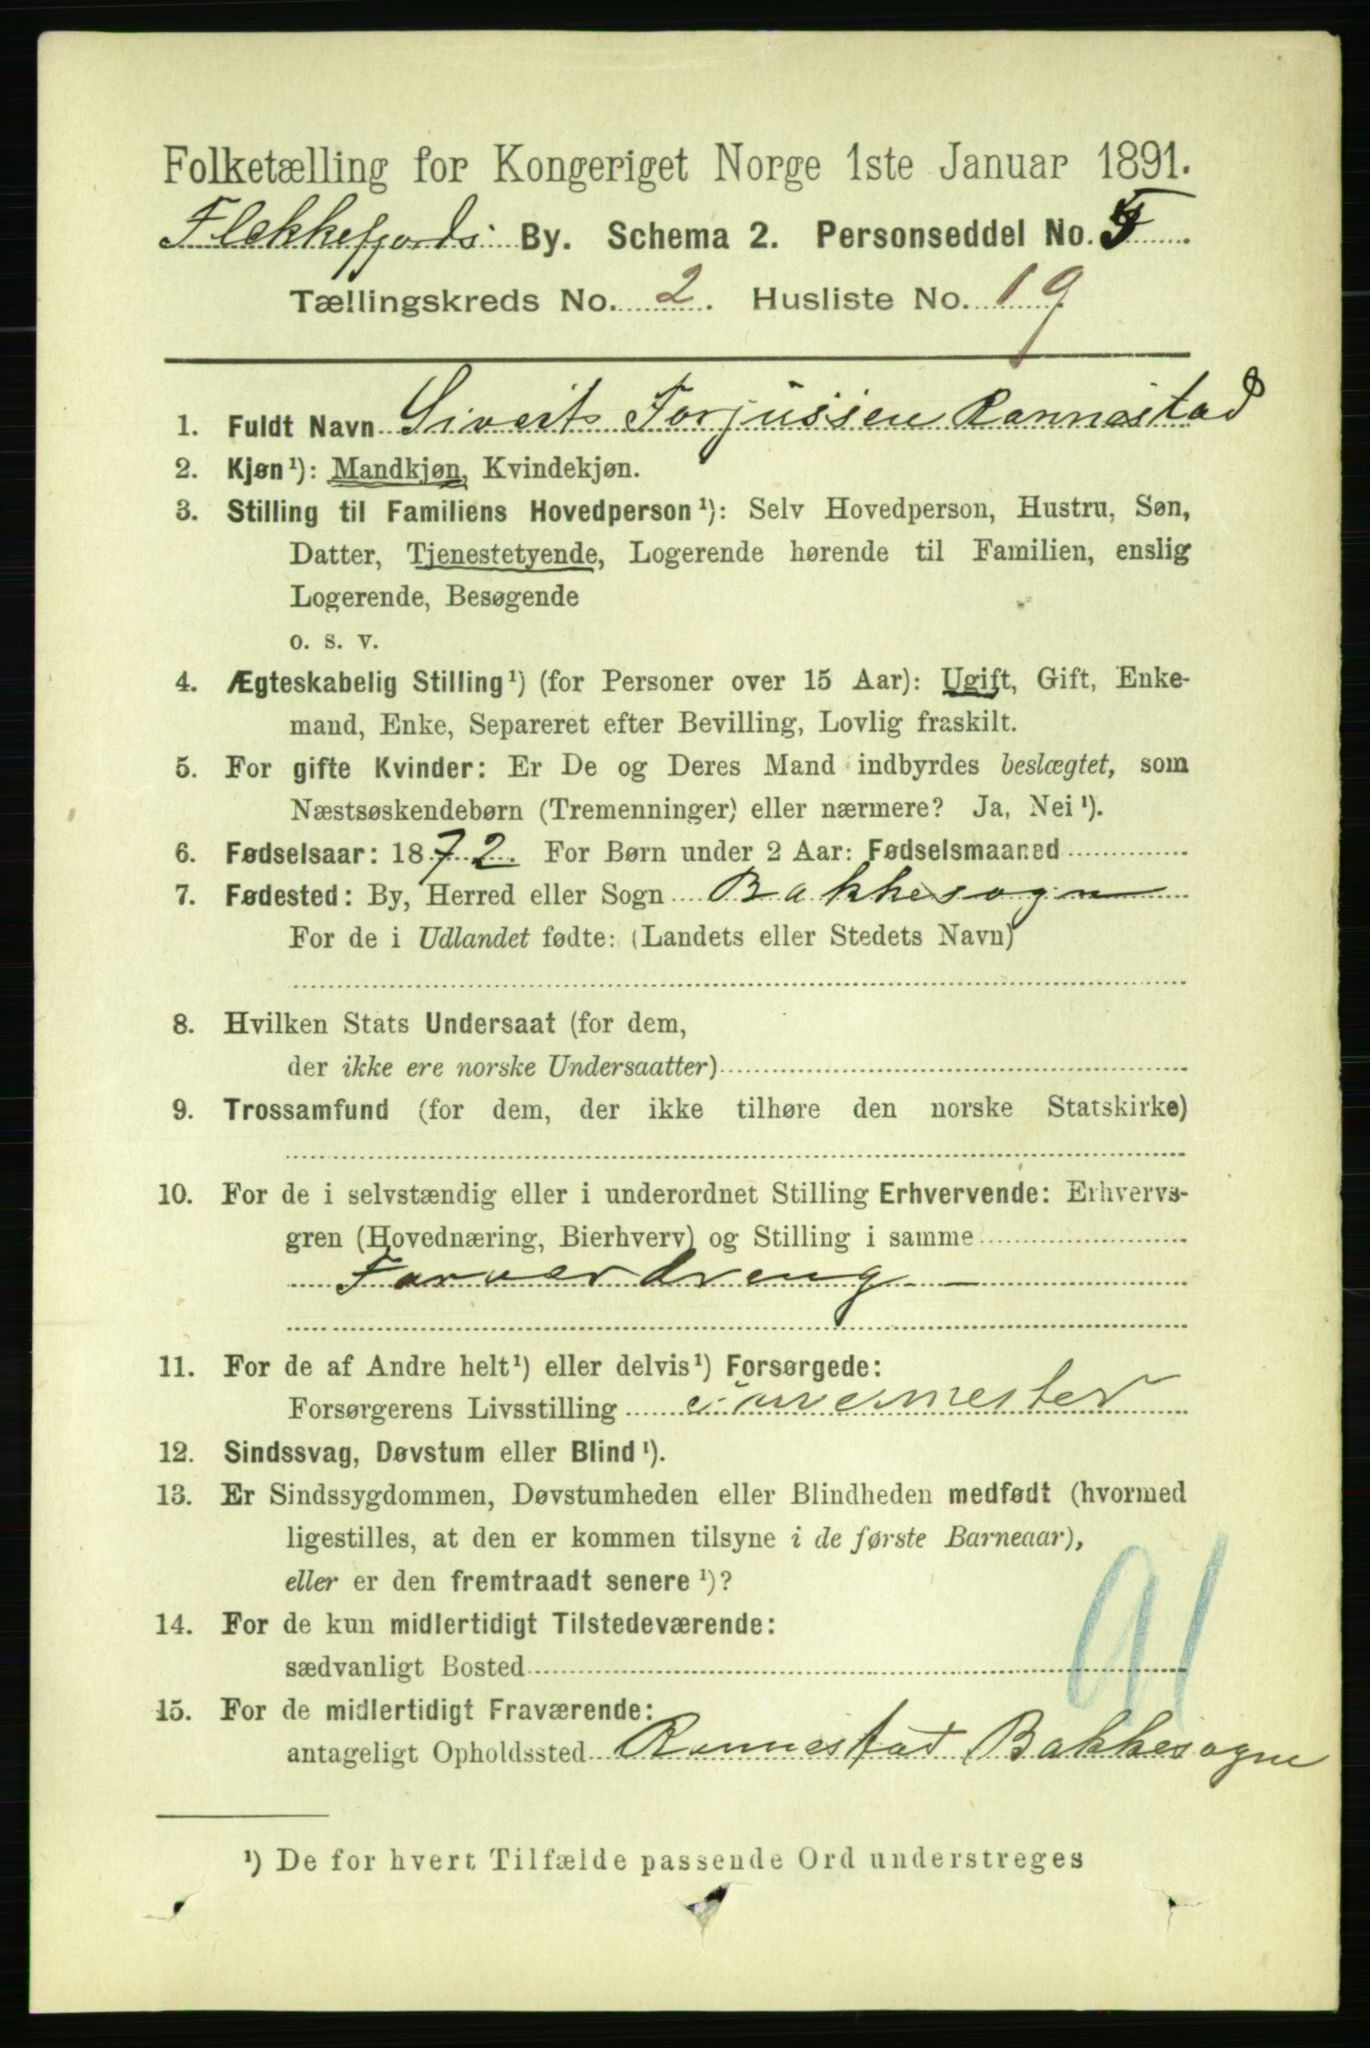 Folketælling for Kongeriget Norge 1ste Januar 1891.
Flekkefjords By. Schema 2. Personseddel No. 5
Tællingskreds No. 2. Husliste No. 19
1. Fuldt Navn Sivert Torjussen Rannestad
2. Kjøn¹): Mandkjøn, Kvindekjøn.
3. Stilling til Familiens Hovedperson¹): Selv Hovedperson, Hustru, Søn,
Datter, Tjenestetyende, Logerende hørende til Familien, enslig
Logerende, Besøgende
o. s. v.
4. Ægteskabelig Stilling¹) (for Personer over 15 Aar): Ugift, Gift, Enke-
mand, Enke, Separeret efter Bevilling, Lovlig fraskilt.
5. For gifte Kvinder: Er De og Deres Mand indbyrdes beslægtet, som
Næstsøskendebørn (Tremenninger) eller nærmere? Ja, Nei¹).
6. Fødselsaar: 1872. For Børn under 2 Aar: Fødselsmaaned
7. Fødested: By, Herred eller Sogn Bakkesogn
For de i Udlandet fødte: (Landets eller Stedets Navn)
8. Hvilken Stats Undersaat (for dem,
der ikke ere norske Undersaatter)
9. Trossamfund (for dem, der ikke tilhøre den norske Statskirke)
10. For de i selvstændig eller i underordnet Stilling Erhvervende: Erhvervs-
gren (Hovednæring, Bierhverv) og Stilling i samme
Farverdreng
11. For de af Andre helt¹) eller delvis¹) Forsørgede:
Forsørgerens Livsstilling Farvermester
12. Sindssvag, Døvstum eller Blind¹).
13. Er Sindssygdommen, Døvstumheden eller Blindheden medfødt (hvormed
ligestilles, at den er kommen tilsyne i de første Barneaar),
eller er den fremtraadt senere¹)?
14. For de kun midlertidigt Tilstedeværende:
sædvanligt Bosted
91
15. For de midlertidigt Fraværende:
antageligt Opholdssted Rannestad Bakkesogne
¹) De for hvert Tilfælde passende Ord understreges